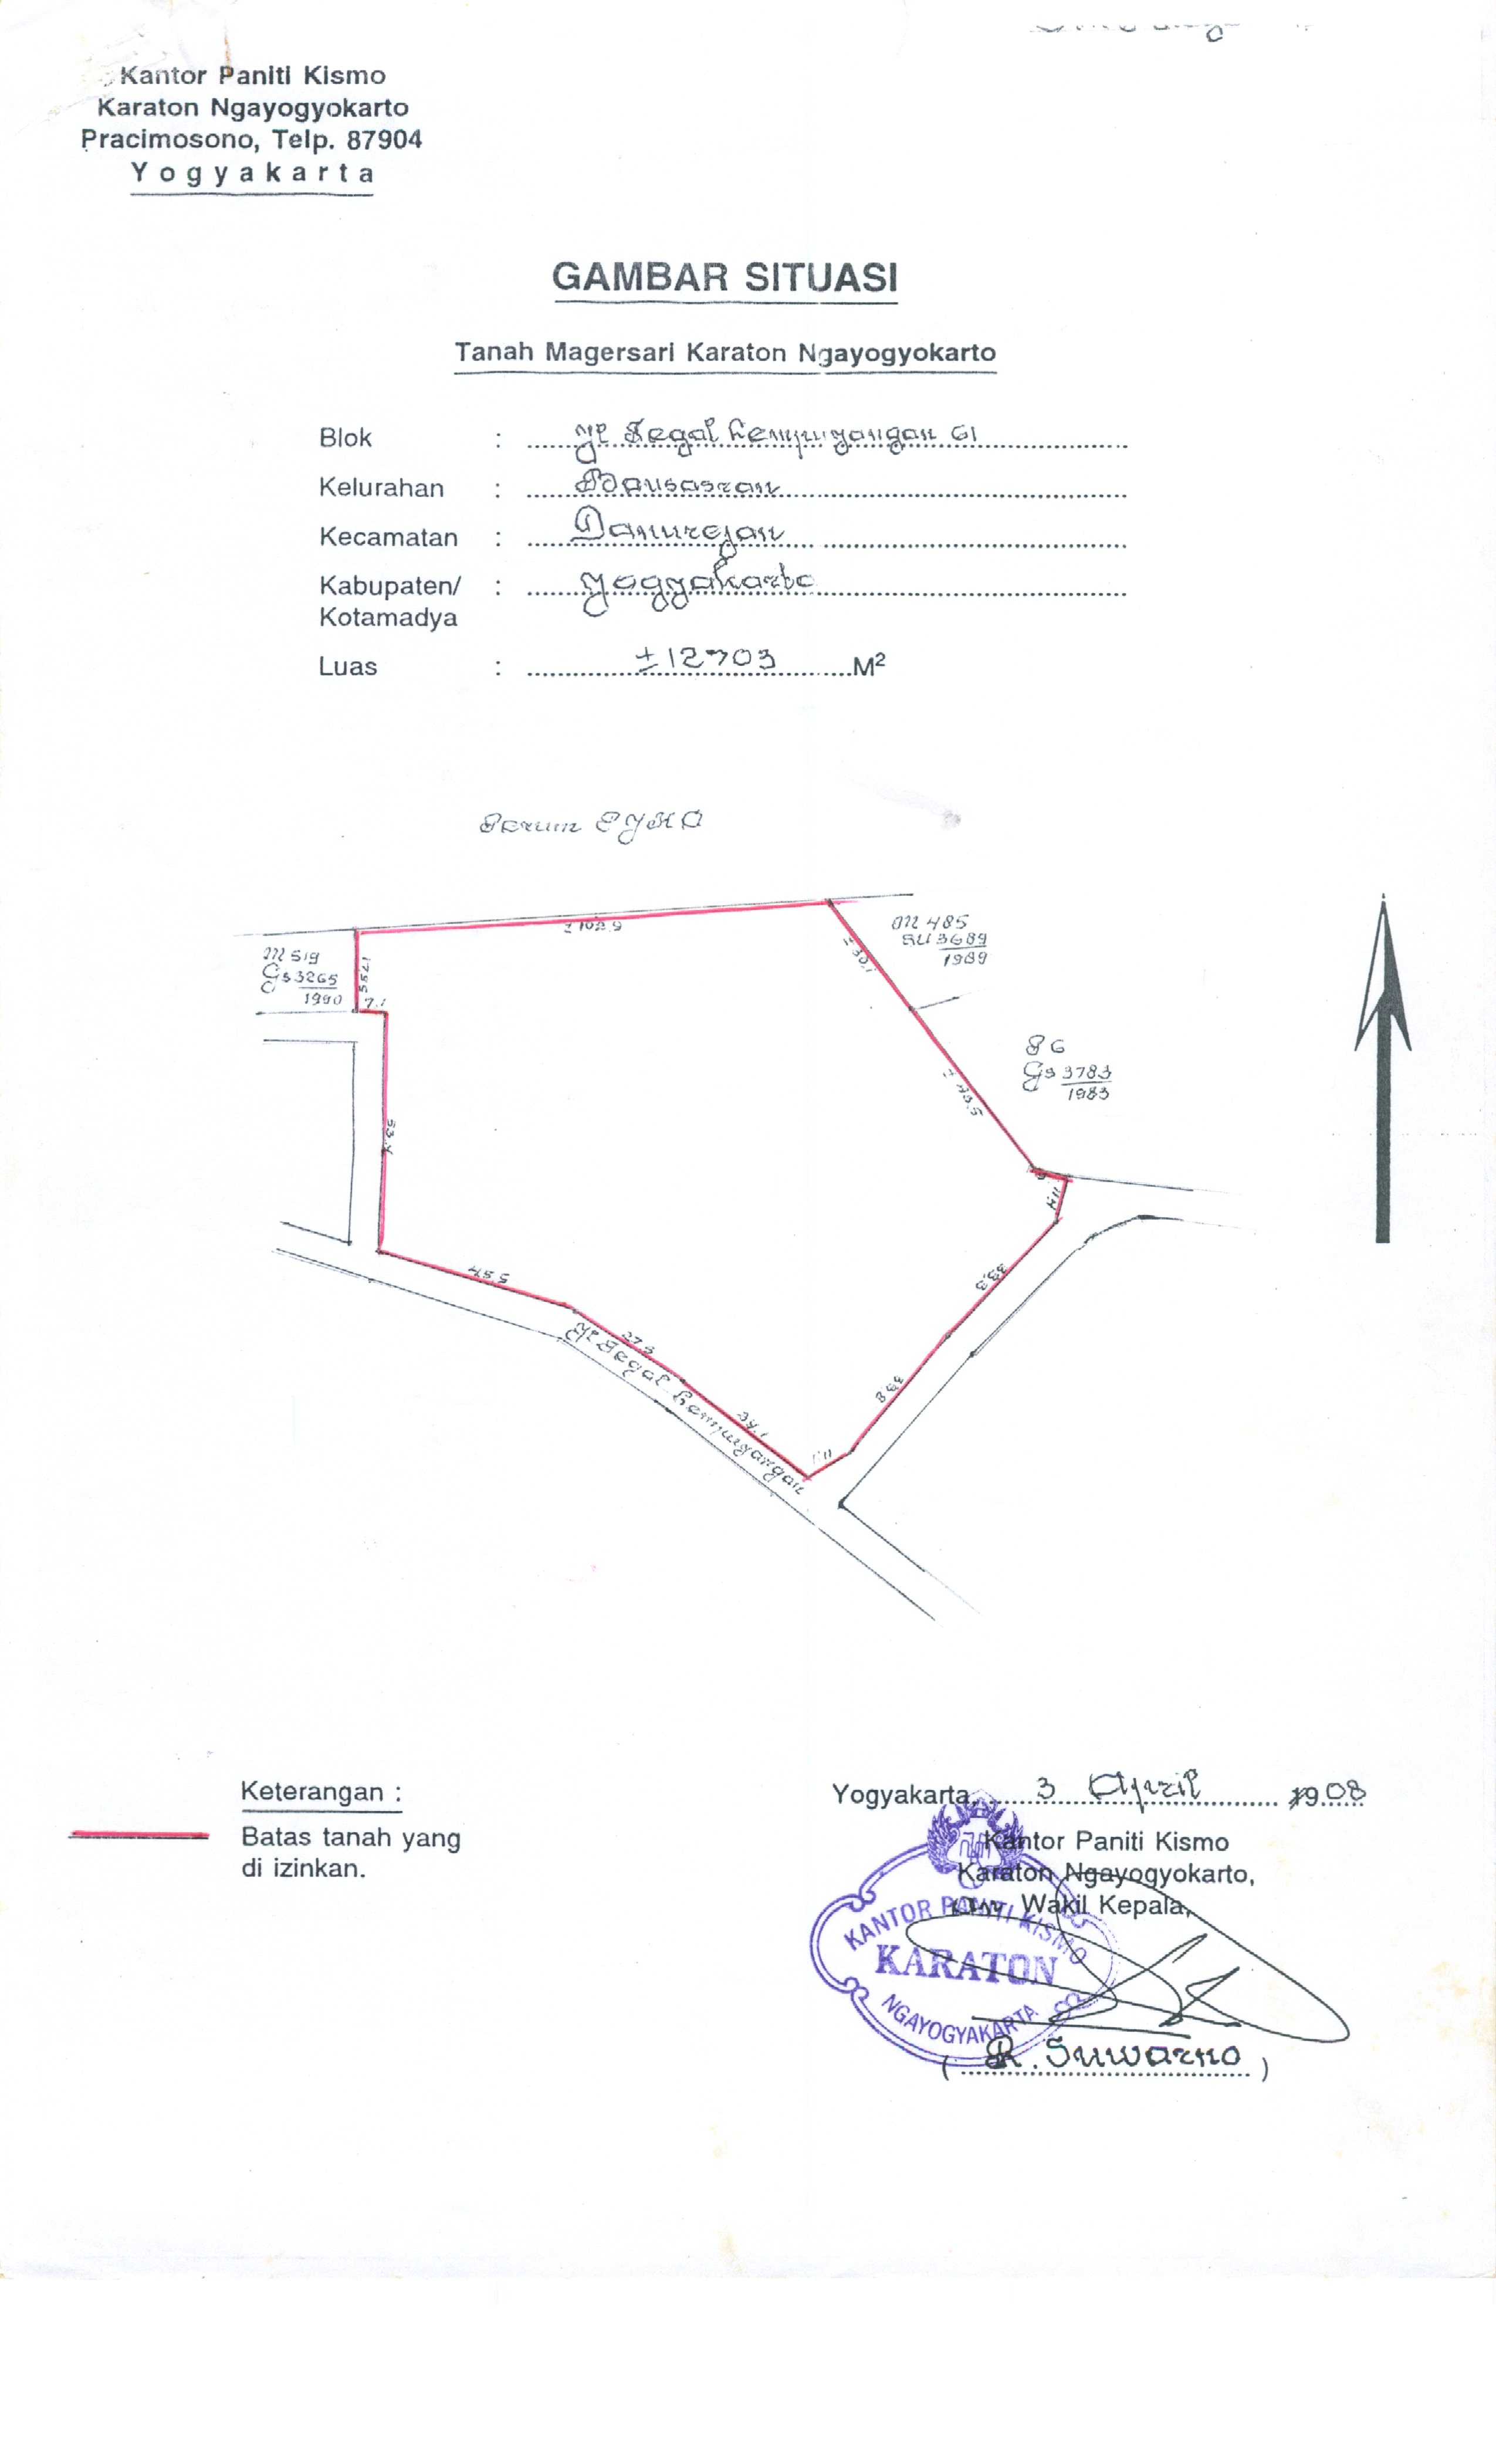 Kantor Paniti Kismo
Karaton Ngayogyokarto
Pracimosono, Telp. 87904
Yogyakarta
GAMBAR SITUASI
Tanah Magersari Karaton Ngayogyokarto
Blok : Jl Tegal Lempuyangan 61
Kelurahan : Bausasran
Kecamatan : Danurejan
Kabupaten/ : Yogyakarta
Kotamadya
Luas : ±12703 M²
Perum PJKA
± 102.9
M 519
Gs 3265
1990
7.1
M 485
SU 3689
1989
± 30,1
Gs 3783
1983
53.4
33.3
33.8
27.3
11,1
Jl Tegal Lempuyangan
Keterangan :
Batas tanah yang
di izinkan.
Yogyakarta, 3 April 1908
Kantor Paniti Kismo
Karaton Ngayogyokarto,
Wakil Kepala,
KANTOR PANITI KISMO
KARATON
NGAYOGYAKARTA
( R. Suwarno )